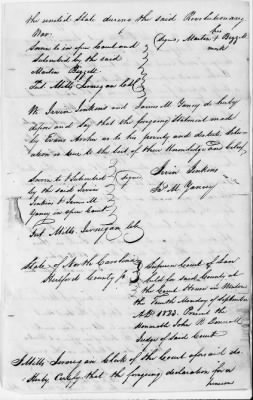 the united State during the said Revolutionary
War.
Sworn to in open Court and
Subscribed by the said
Martin Bizzell
Test Mills Jernegan Clk
Signed, Martin his X Bizzell
mark
We Irvin Jenkins and James M. Yancy do hereby
depose and say that the foregoing Statement made
by as to his poverty and
is true to the best of their Knowledge and belief,
Sworn to & Subscribed
by the said Irvin
Jenkins & James M
Yancy in open Court
Test Mills Jernegan Clk
Signed
Irvin Jenkins
Jas M. Yancey
State of North Carolina
Hertford County
Superior Court of Law
held for said County at
the Court House in
the Tenth Monday of September
A.D. 1823. Present the
Honorable John R. Donnell
Judge of said Court
I Mills Jernegan Clerk of the Court aforesaid do
Hereby Certify that the foregoing declaration for a